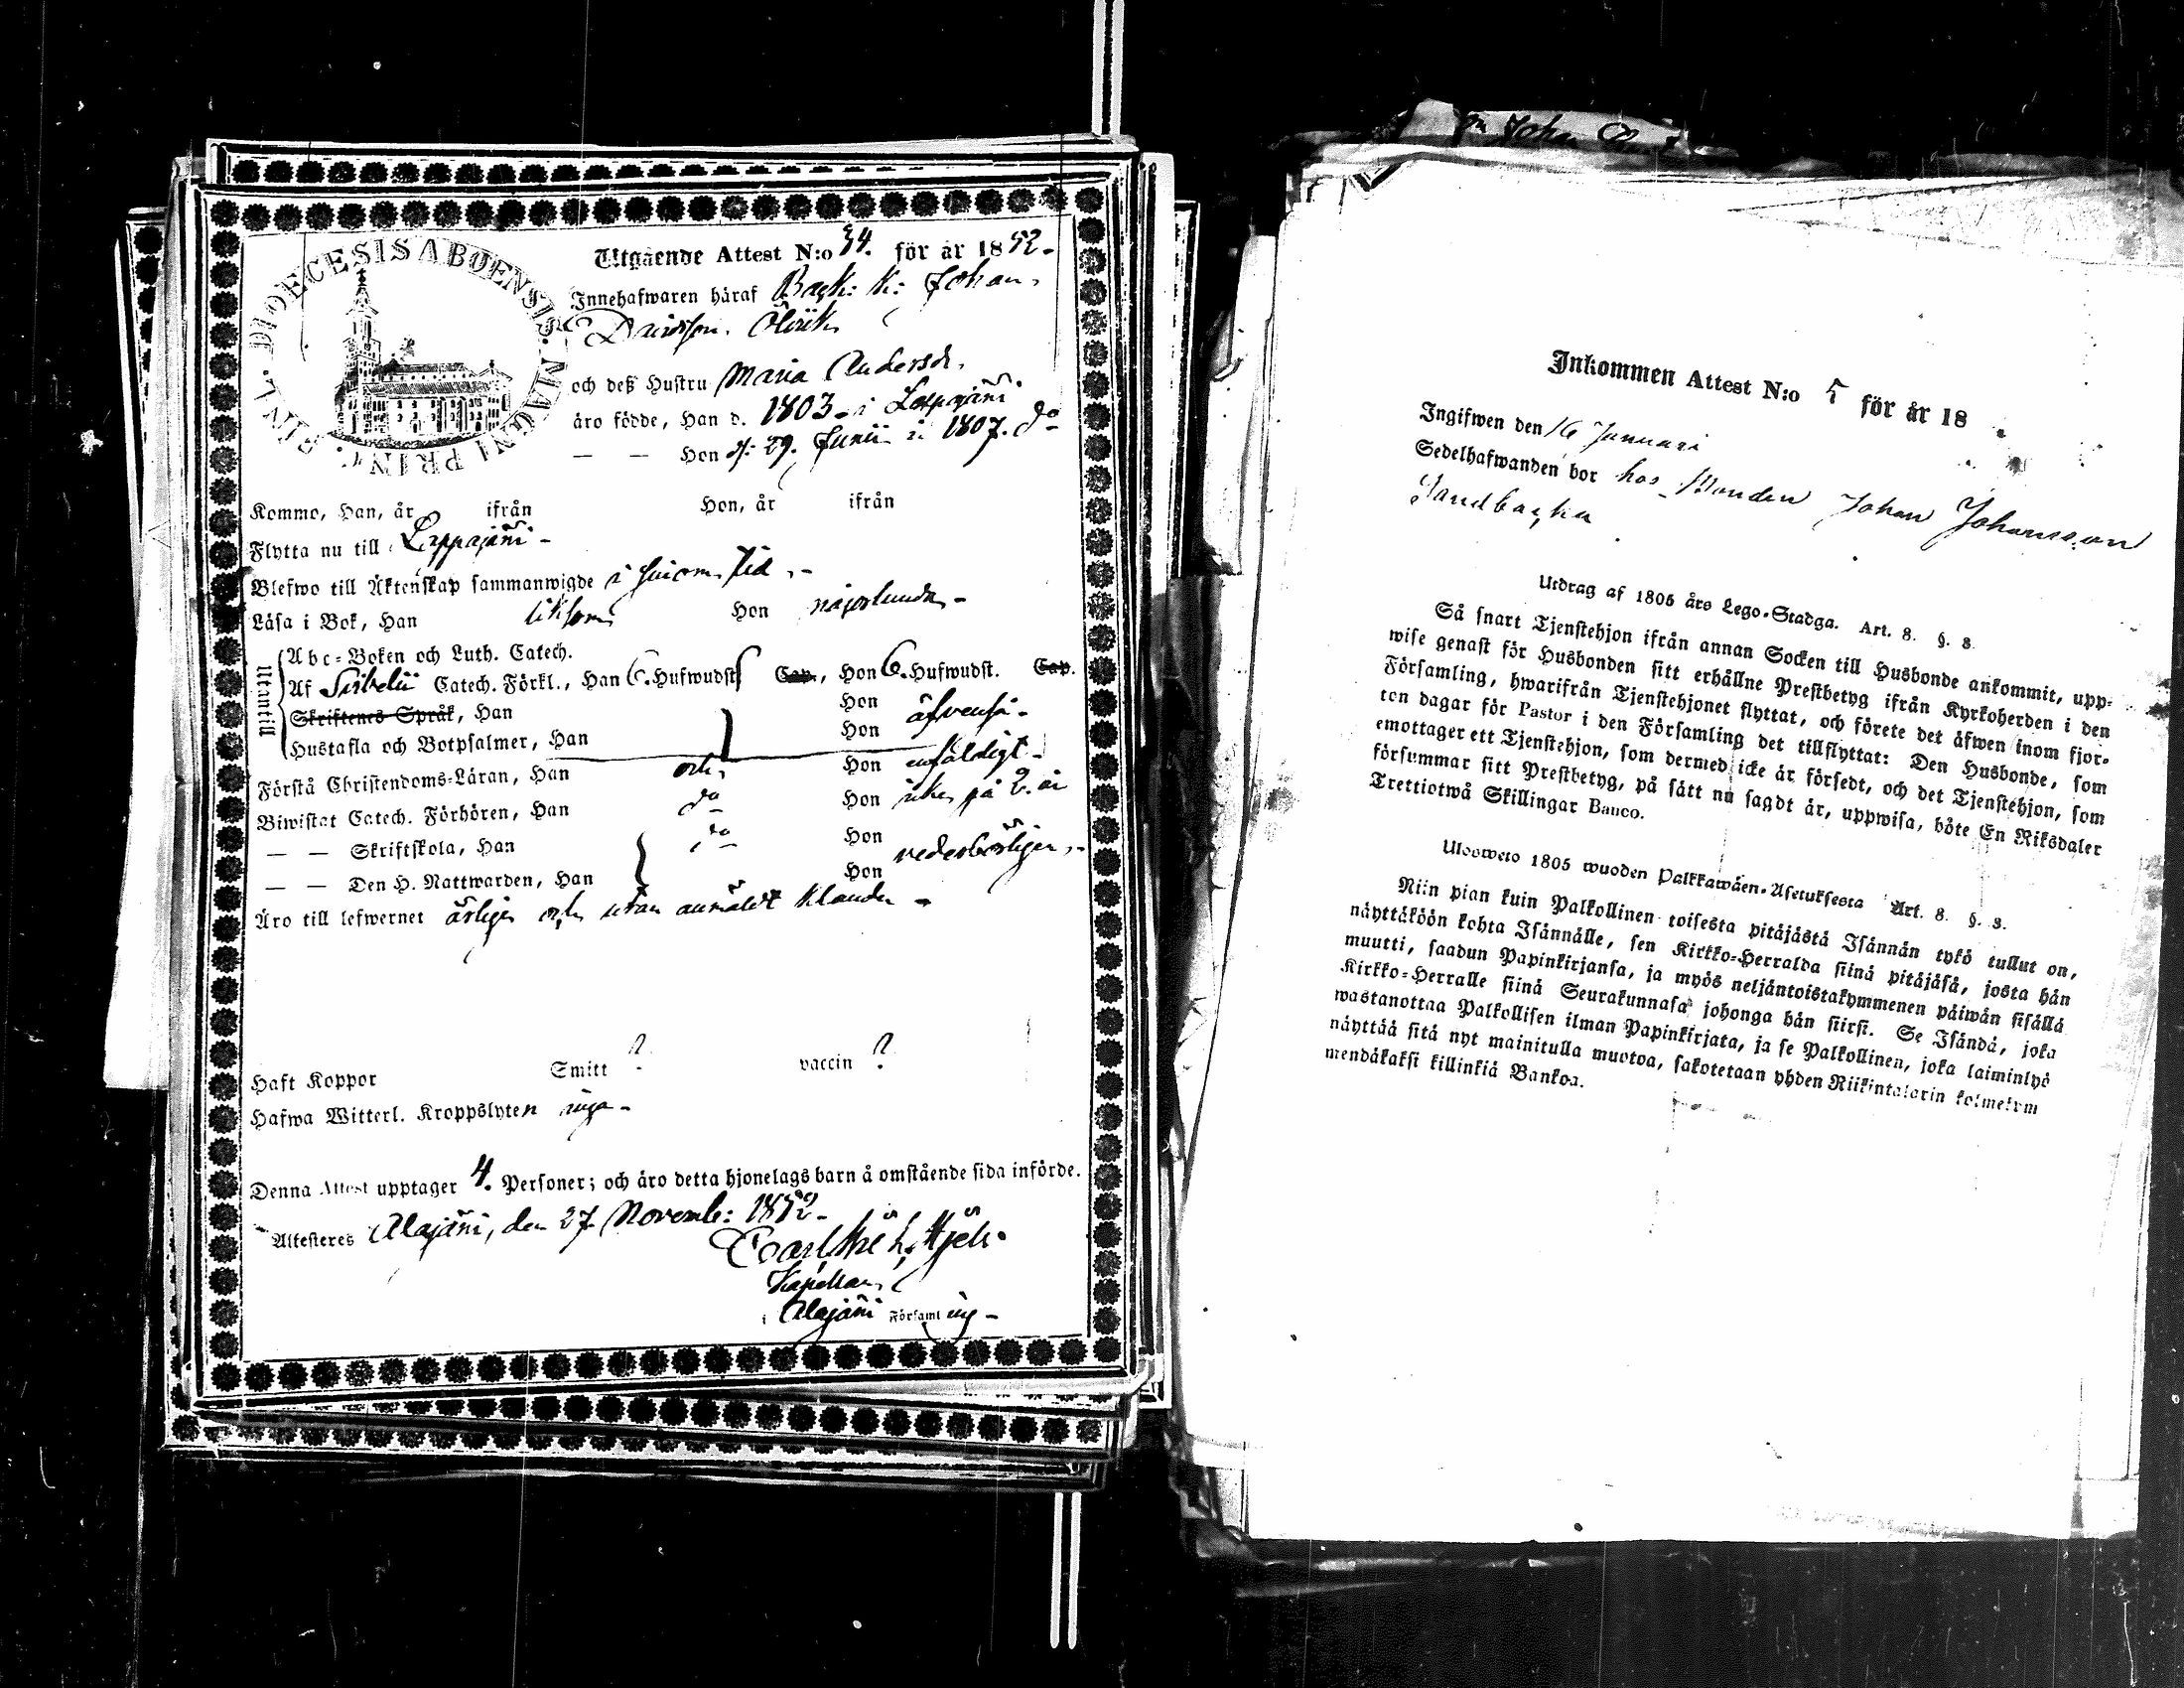 DIOECESIS ABOENSIS. MAGNI PRINC. FINL.
Utgående Attest N:o 34. för år 1852.
Innehafwaren häraf Back: k: Johan
Davidson
och deß Hustru Maria Andersdr.
äro födde, Han d. 1803 i Lappajärvi
— — Hon d. 29. Junii 1807. do
Komme, Han, år ifrån Hon, år ifrån
Flytta nu till Lappajärvi
Blefwo till Äktenskap sammanwigde i sinom tid
Läsa i Bok, Han Hon någorlunda
Utantill
Abc-Boken och Luth. Catech.
Af Catech. Förkl., Han 6. Hufwudst Cap., Hon 6. Hufwudst. Cap.
Skriftenes Språk, Han Hon
Hustafla och Botpsalmer, Han Hon äfvenså
Förstå Christendoms-Läran, Han och Hon enfaldigt
Biwistat Catech. Förhören, Han do Hon icke på 2. år
— — Skriftskola, Han do Hon
— — Den H. Nattwarden, Han Hon vederbörligen
Äro till lefwernet ärliga och utan anmäldt klander
Haft Koppor Smitt ? vaccin ?
Hafwa Witterl. Kroppslyten inga
Denna Attest upptager 4. Personer; och äro detta hjonelags barn å omstående sida införde.
Attesteres Alajärvi, den 27 Novemb: 1852
Kapellan
i Alajärvi Församling
Johan
Inkommen Attest N:o 5 för år 18
Ingifwen den 16 Januari
Sedelhafwanden bor hos Bonden Johan Johansson
Sandbacka
Utdrag af 1805 års Lego-Stadga. Art. 8. §. 8.
Så snart Tjenstehjon ifrån annan Socken till Husbonde ankommit, upp-
wise genast för Husbonden sitt erhållne Prestbetyg ifrån Kyrkoherden i den
Församling, hwarifrån Tjenstehjonet flyttat, och förete det äfwen inom fjor-
ton dagar för Pastor i den Församling det tillflyttat: Den Husbonde, som
emottager ett Tjenstehjon, som dermed icke är försedt, och det Tjenstehjon, som
försummar sitt Prestbetyg, på sätt nu sagdt är, uppwisa, böte En Riksdaler
Trettiotwå Skillingar Banco.
Ulosweto 1805 wuoden Palkkawäen-Asetuksesta Art. 8. §. 8.
Niin pian kuin Palkollinen toisesta pitäjästä Isännän tykö tullut on,
näyttäköön kohta Isännälle, sen Kirkko-Herralda siinä pitäjäsä, josta hän
muutti, saadun Papinkirjansa, ja myös neljäntoistakymmenen päiwän sisällä
Kirkko-Herralle siinä Seurakunnasa johonga hän siirsi. Se Isändä, joka
wastanottaa Palkollisen ilman Papinkirjata, ja se Palkollinen, joka laiminlyö
näyttää sitä nyt mainitulla muotoa, sakotetaan yhden Riikintalarin kolmekym
mendäkaksi killinkiä Bankoa.